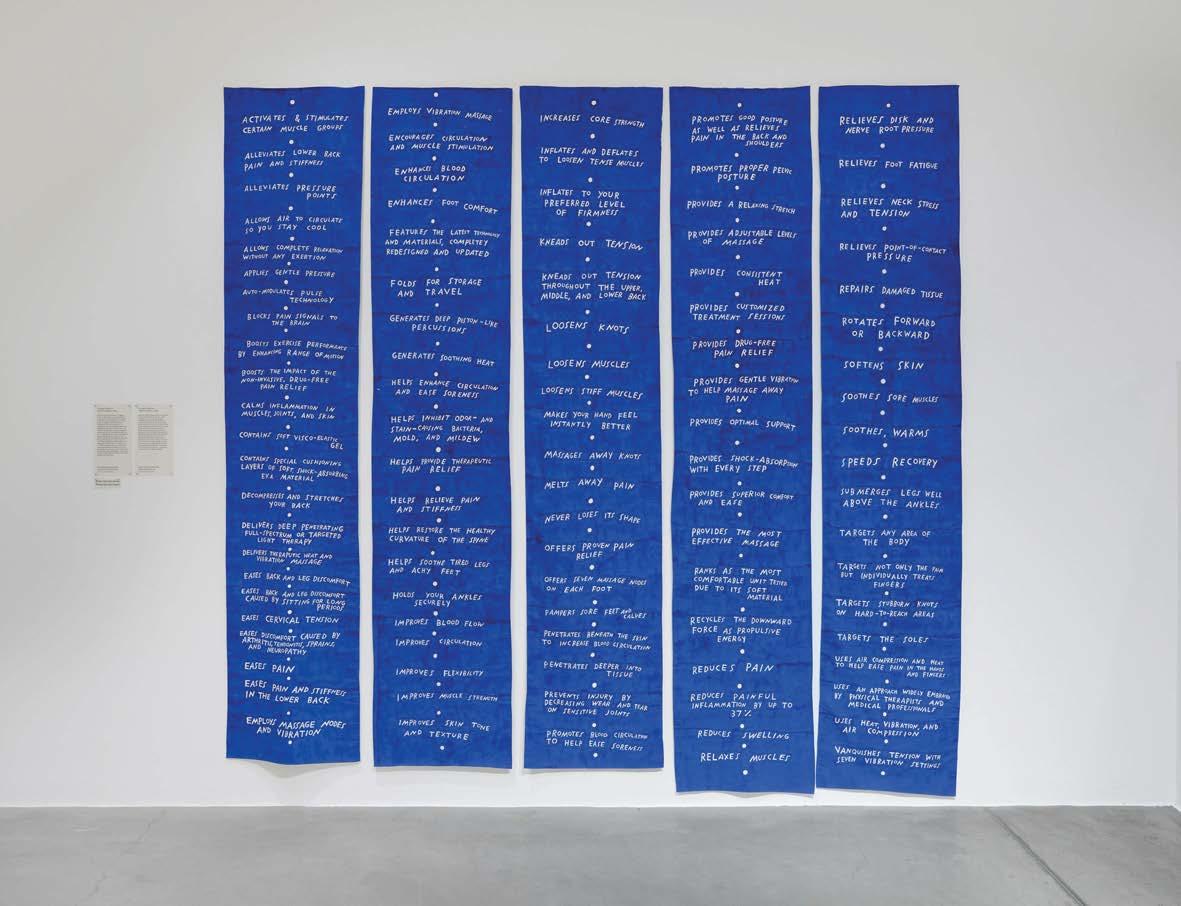 ACTIVATES & STIMULATES
CERTAIN MUSCLE GROUPS
ALLEVIATES LOWER BACK
PAIN AND STIFFNESS
ALLEVIATES PRESSURE
POINTS
ALLOWS AIR TO CIRCULATE
SO YOU STAY COOL
ALLOWS COMPLETE RELAXATION
WITHOUT ANY EXERTION
APPLIES GENTLE PRESSURE
AUTO-MODULATES PULSE
TECHNOLOGY
BLOCKS PAIN SIGNALS TO
THE BRAIN
BOOSTS EXERCISE PERFORMANCE
BY ENHANCING RANGE OF MOTION
BOOSTS THE IMPACT OF THE
NON-INVASIVE, DRUG-FREE
PAIN RELIEF
CALMS INFLAMMATION IN
MUSCLES, JOINTS, AND SKIN
CONTAINS SOFT VISCO-ELASTIC
GEL
CONTAINS SPECIAL CUSHIONING
LAYERS OF SOFT, SHOCK-ABSORBING
EVA MATERIAL
DECOMPRESSES AND STRETCHES
YOUR BACK
DELIVERS DEEP PENETRATING
FULL-SPECTRUM OR TARGETED
LIGHT THERAPY
DELIVERS THERAPUTIC HEAT AND
VIBRATION MASSAGE
EASES BACK AND LEG DISCOMFORT
EASES BACK AND LEG DISCOMFORT
CAUSED BY SITTING FOR LONG
PERIODS
EASES CERVICAL TENSION
EASES DISCOMFORT CAUSED BY
ARTHRITIS, TENDONITIS, SPRAINS,
AND NEUROPATHY
EASES PAIN
EASES PAIN AND STIFFNESS
IN THE LOWER BACK
EMPLOYS MASSAGE NODES
AND VIBRATION
EMPLOYS VIBRATION MASSAGE
ENCOURAGES CIRCULATION
AND MUSCLE STIMULATION
ENHANCES BLOOD
CIRCULATION
ENHANCES FOOT COMFORT
FEATURES THE LATEST TECHNOLOGY
AND MATERIALS, COMPLETEY
REDESIGNED AND UPDATED
FOLDS FOR STORAGE
AND TRAVEL
GENERATES DEEP PISTON-LIKE
PERCUSSIONS
GENERATES SOOTHING HEAT
HELPS ENHANCE CIRCULATION
AND EASE SORENESS
HELPS INHIBIT ODOR- AND
STAIN-CAUSING BACTERIA,
MOLD, AND MILDEW
HELPS PROVIDE THERAPEUTIC
PAIN RELIEF
HELPS RELIEVE PAIN
AND STIFFNESS
HELPS RESTORE THE HEALTHY
CURVATURE OF THE SPINE
HELPS SOOTHE TIRED LEGS
AND ACHY FEET
HOLDS YOUR ANKLES
SECURELY
IMPROVES BLOOD FLOW
IMPROVES CIRCULATION
IMPROVES FLEXIBILITY
IMPROVES MUSCLE STRENGTH
IMPROVES SKIN TONE
AND TEXTURE
INCREASES CORE STRENGTH
INFLATES AND DEFLATES
TO LOOSEN TENSE MUSCLES
INFLATES TO YOUR
PREFERRED LEVEL
OF FIRMNESS
KNEADS OUT TENSION
KNEADS OUT TENSION
THROUGHOUT THE UPPER,
MIDDLE, AND LOWER BACK
LOOSENS KNOTS
LOOSENS MUSCLES
LOOSENS STIFF MUSCLES
MAKES YOUR HAND FEEL
INSTANTLY BETTER
MASSAGES AWAY KNOTS
MELTS AWAY PAIN
NEVER LOSES ITS SHAPE
OFFERS PROVEN PAIN
RELIEF
OFFERS SEVEN MASSAGE NODES
ON EACH FOOT
PAMPERS SORE FEET AND
CALVES
PENETRATES BENEATH THE SKIN
TO INCREASE BLOOD CIRCULATION
PENETRATES DEEPER INTO
TISSUE
PREVENTS INJURY BY
DECREASING WEAR AND TEAR
ON SENSITIVE JOINTS
PROMOTES BLOOD CIRCULATION
TO HELP EASE SORENESS
PROMOTES GOOD POSTURE
AS WELL AS RELIEVES
PAIN IN THE BACK AND
SHOULDERS
PROMOTES PROPER PELVIC
POSTURE
PROVIDES A RELAXING STRETCH
PROVIDES ADJUSTABLE LEVELS
OF MASSAGE
PROVIDES CONSISTENT
HEAT
PROVIDES CUSTOMIZED
TREATMENT SESSIONS
PROVIDES DRUG-FREE
PAIN RELIEF
PROVIDES GENTLE VIBRATION
TO HELP MASSAGE AWAY
PAIN
PROVIDES OPTIMAL SUPPORT
PROVIDES SHOCK-ABSORPTION
WITH EVERY STEP
PROVIDES SUPERIOR COMFORT
AND EASE
PROVIDES THE MOST
EFFECTIVE MASSAGE
RANKS AS THE MOST
COMFORTABLE UNIT TESTED
DUE TO ITS SOFT
MATERIAL
RECYCLES THE DOWNWARD
FORCE AS PROPULSIVE
ENERGY
REDUCES PAIN
REDUCES PAINFUL
INFLAMMATION BY UP TO
37%
REDUCES SWELLING
RELAXES MUSCLES
RELIEVES DISK AND
NERVE ROOT PRESSURE
RELIEVES FOOT FATIGUE
RELIEVES NECK STRESS
AND TENSION
RELIEVES POINT-OF-CONTACT
PRESSURE
REPAIRS DAMAGED TISSUE
ROTATES FORWARD
OR BACKWARD
SOFTENS SKIN
SOOTHES SORE MUSCLES
SOOTHES, WARMS
SPEEDS RECOVERY
SUBMERGES LEGS WELL
ABOVE THE ANKLES
TARGETS ANY AREA OF
THE BODY
TARGETS NOT ONLY THE PAIN
BUT INDIVIDUALLY TREATS
FINGERS
TARGETS STUBBORN KNOTS
ON HARD-TO-REACH AREAS
TARGETS THE SOLES
USES AIR COMPRESSION AND HEAT
TO HELP EASE PAIN IN THE HANDS
AND FINGERS
USES AN APPROACH WIDELY EMBRACED
BY PHYSICAL THERAPISTS AND
MEDICAL PROFESSIONALS
USES HEAT, VIBRATION, AND
AIR COMPRESSION
VANQUISHES TENSION WITH
SEVEN VIBRATION SETTINGS